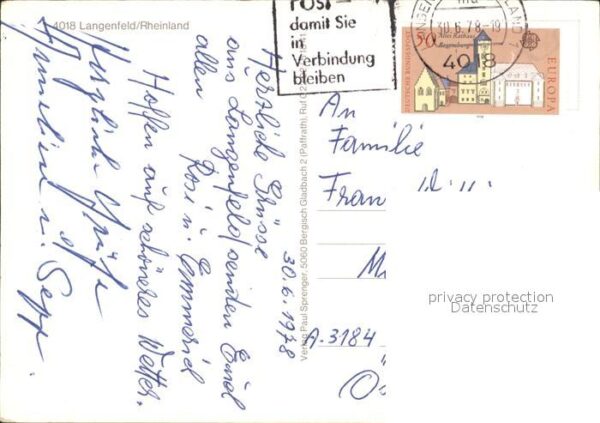 4018 Langenfeld/Rheinland
30.6.1978
Herzliche Grüsse
aus Langenfeld senden Euch
allen Rosi u. Emmerich
Hoffen auf schöneres Wetter.
Herzliche Grüße
Anneliese u. Sepp.
Verlag Paul Sprenger, 5060 Bergisch Gladbach 2 (Paffrath), Ruf
POST-
damit Sie
in
Verbindung
bleiben
30.6.78-19
4018
50
Altes Rathaus
Regensburg
DEUTSCHE BUNDESPOST
EUROPA
An
Familie
Fran
A-3184
privacy protection
Datenschutz